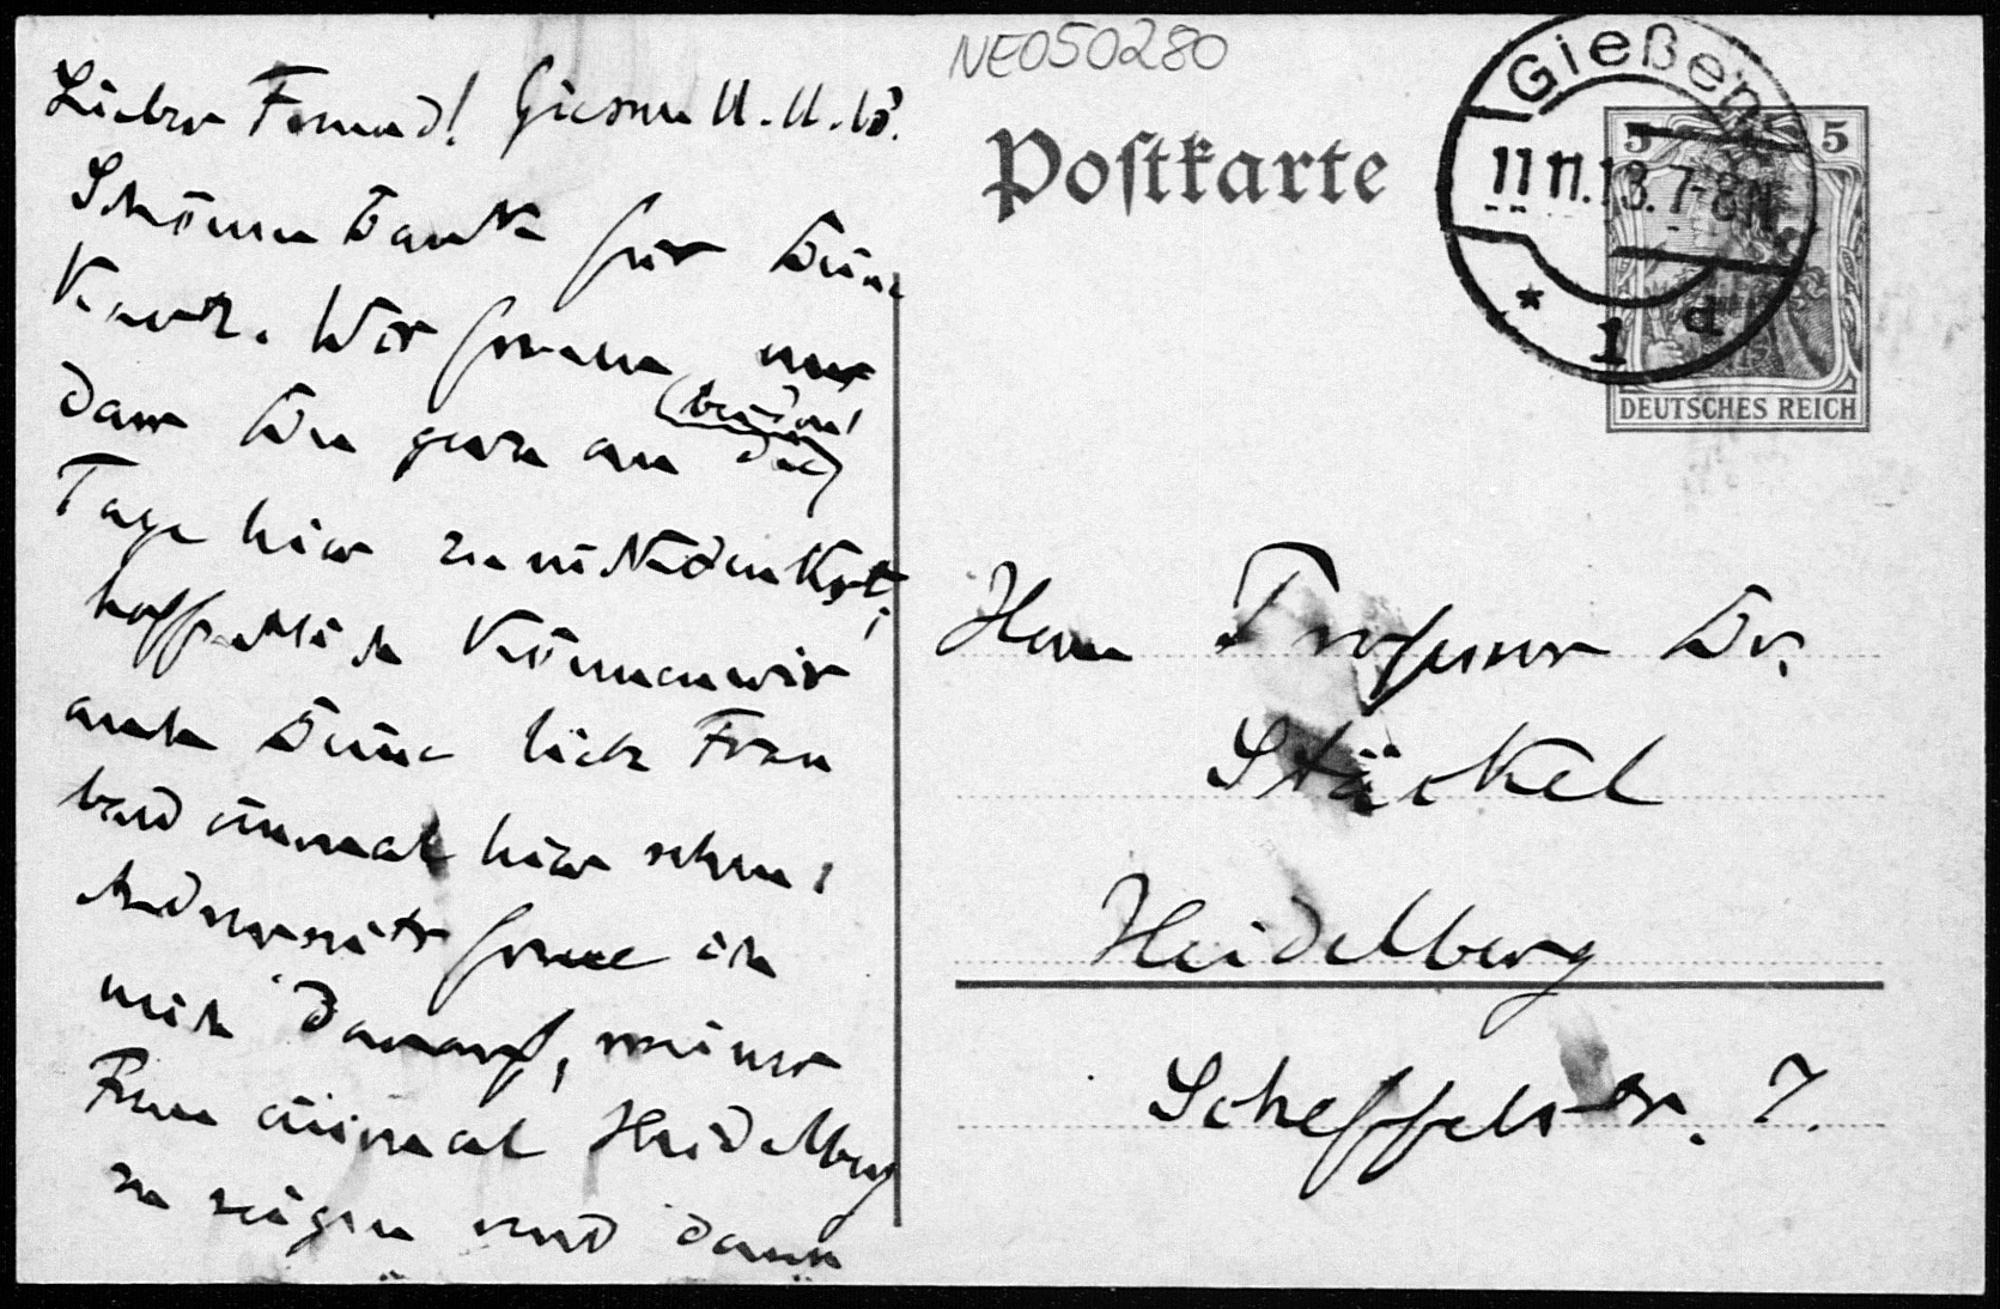 Lieber Freund! Giessen 11.11.13.
Schönen Dank für Deine
Karte. Wir freuen uns
dass Du gern an die
(beiden)
Tage hier zurückdenkst,
hoffentlich können wir
auch Deine liebe Frau
bald einmal hier sehen.
Andererseits freue ich
mich darauf, meiner
Frau einmal Heidelberg
zu zeigen und dann
NE050280
Postkarte
Gießen
11.11.13.7-8N.
* 1 d
5 5
DEUTSCHES REICH
Herrn Professor Dr.
Stäckel
Heidelberg
Scheffelstr. 7.